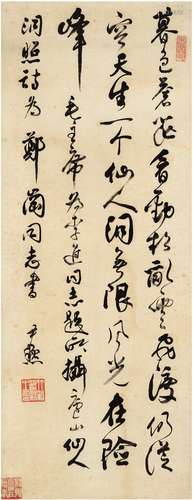 暮色蒼茫看勁松亂雲飛渡仍從
容天生一个仙人洞無限風光在險
峰 毛主席為李進同志題所攝廬山仙人
洞照詩為 鄭同志書 尹默